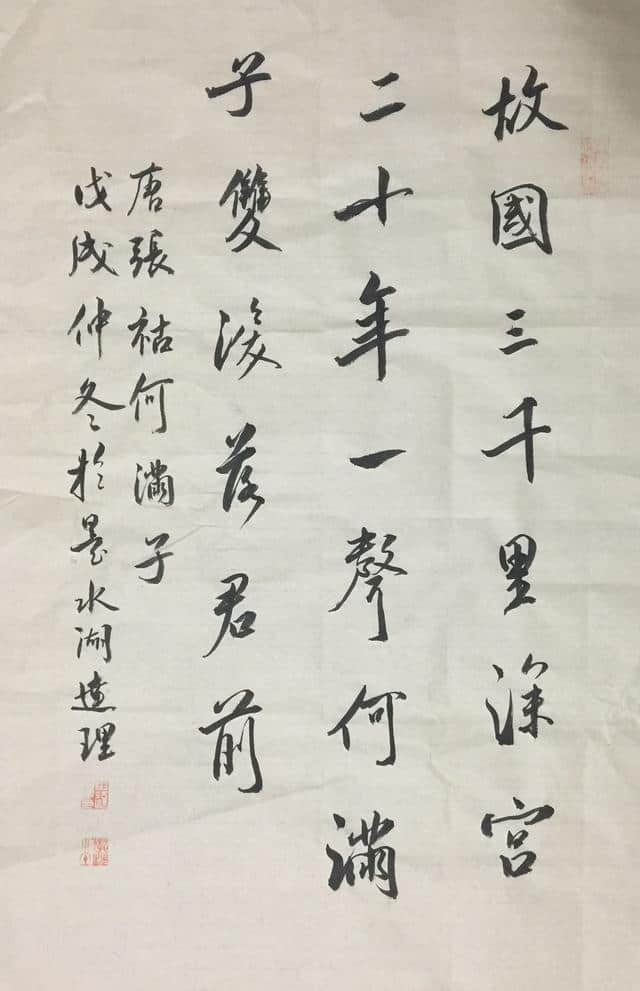 故國三千里深宮
二十年一聲何滿
子雙淚落君前
唐張祜何滿子
戊戌仲冬於墨水湖達理